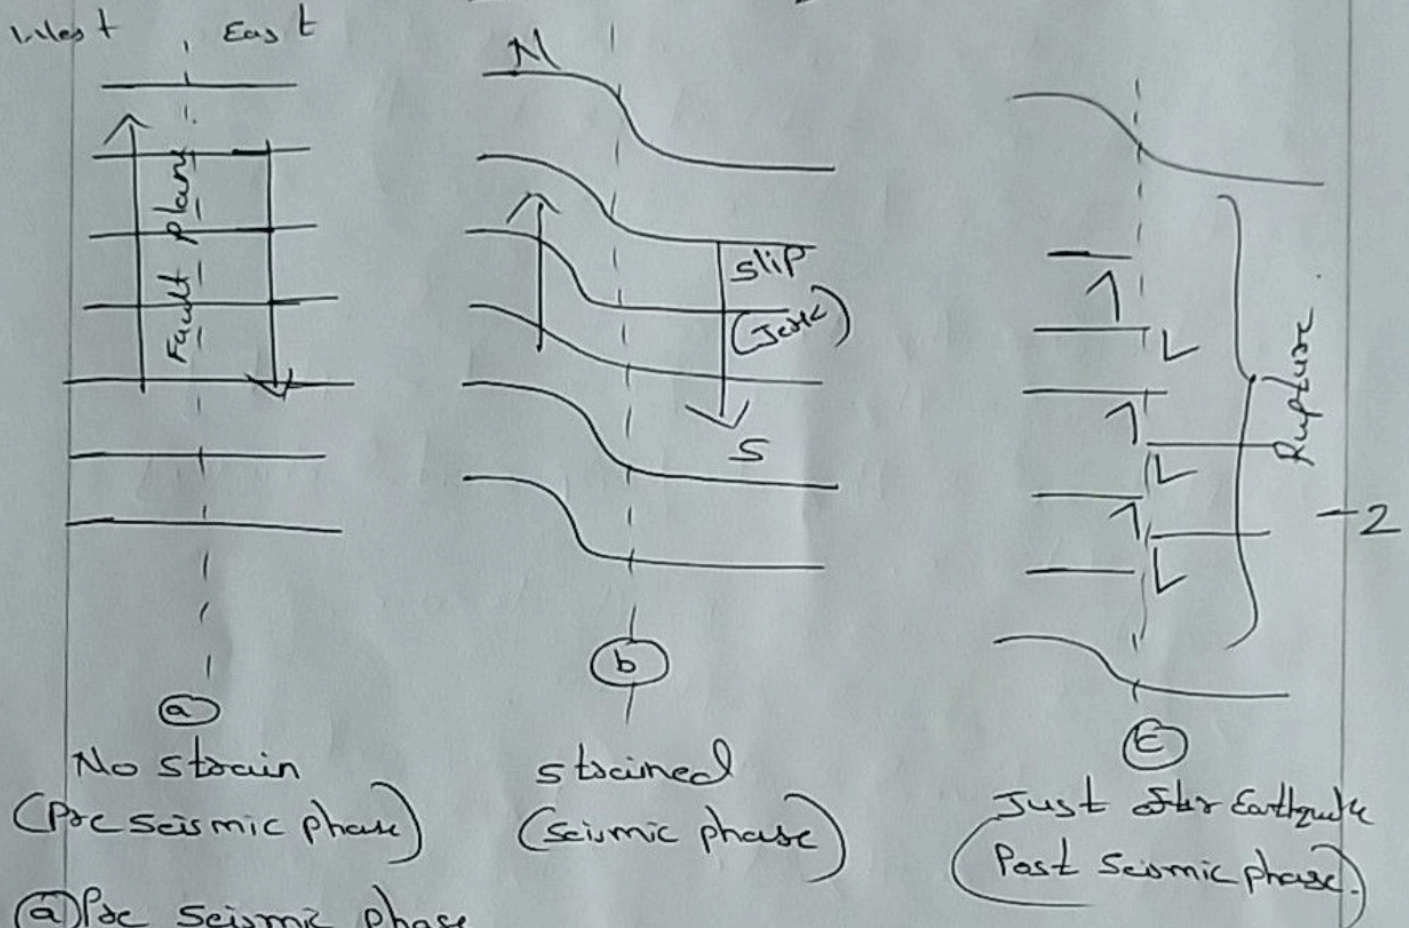 West East
N
Fault Plane
slip
(Jerk)
S
Rupture
-2
a
b
C
No strain
(Pre seismic phase)
strained
(seismic phase)
Just after Earthquake
(Post Seismic phase).
a) Pre seismic phase